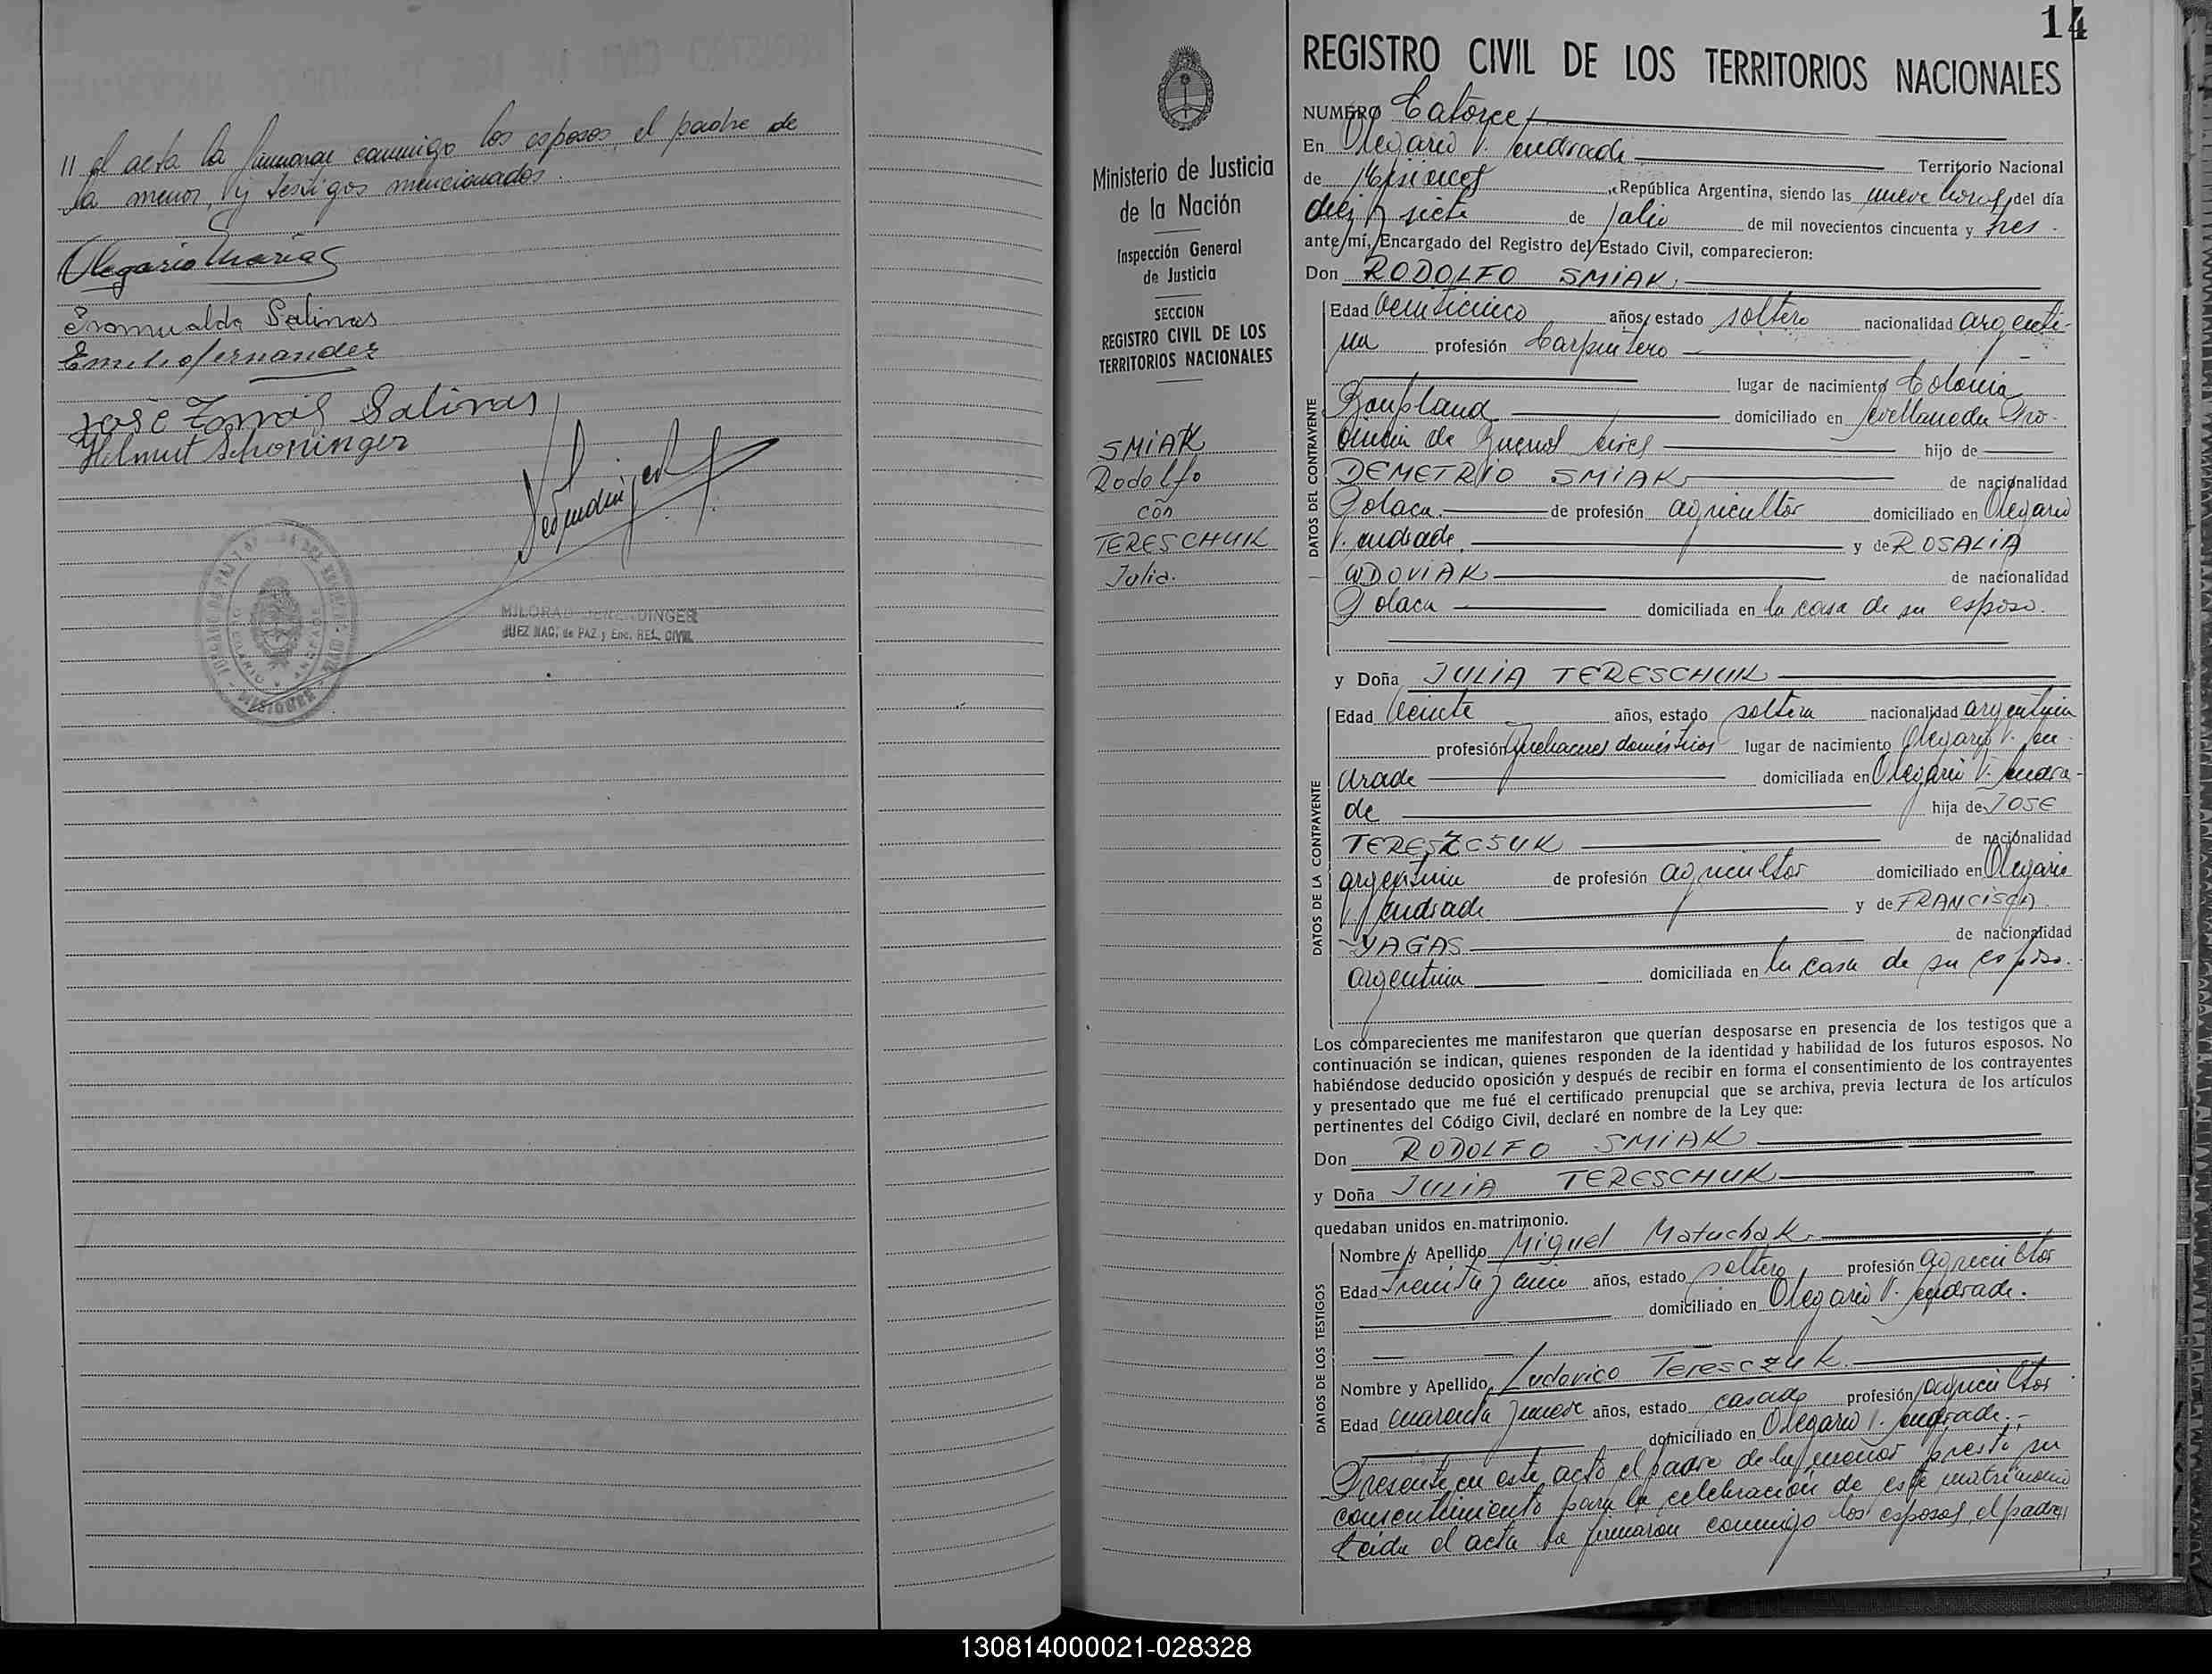 // el acta la firmaron conmigo los esposos, el padre de
la menor, y testigos mencionados.
Olegario Marías
Eromualda Salinas
Emilio fernandez
José Tomás Salinas
Helmut Schoninger
MILORAD DERENDINGER
JUEZ NAC. de PAZ y Enc. REG. CIVIL
MISIONES
14
Ministerio de Justicia
de la Nación
Inspección General
de Justicia
SECCION
REGISTRO CIVIL DE LOS
TERRITORIOS NACIONALES
SMIAK
Rodolfo
con
TERESCHUK
Julia.
REGISTRO CIVIL DE LOS TERRITORIOS NACIONALES
NUMERO Catorce
En Olegario V. Andrade Territorio Nacional
de Misiones, República Argentina, siendo las nueve horas del día
diez y siete de julio de mil novecientos cincuenta y tres.
ante mí, Encargado del Registro del Estado Civil, comparecieron:
Don RODOLFO SMIAK.
DATOS DEL CONTRAYENTE
Edad veinticinco años, estado soltero nacionalidad argenti-
na profesión Carpintero
lugar de nacimiento Colonia
Bonpland domiciliado en Avellaneda Pro-
vincia de Buenos Aires hijo de
DEMETRIO SMIAK de nacionalidad
Polaca. de profesión agricultor domiciliado en Olegario
V. Andrade. y de ROSALIA
WDOVIAK de nacionalidad
Polaca domiciliada en la casa de su esposo.
y Doña JULIA TERESCHUK
DATOS DE LA CONTRAYENTE
Edad Veinte años, estado soltera nacionalidad argentina
profesión Quehaceres domésticos lugar de nacimiento Olegario V. An-
drade domiciliada en Olegario V. Andra-
de hija de JOSE
TERESZCSUK de nacionalidad
argentina de profesión agricultor domiciliado en Olegario
V. Andrade y de FRANCISCA
YAGAS de nacionalidad
argentina domiciliada en la casa de su esposo.
Los comparecientes me manifestaron que querían desposarse en presencia de los testigos que a
continuación se indican, quienes responden de la identidad y habilidad de los futuros esposos. No
habiéndose deducido oposición y después de recibir en forma el consentimiento de los contrayentes
y presentado que me fué el certificado prenupcial que se archiva, previa lectura de los artículos
pertinentes del Código Civil, declaré en nombre de la Ley que:
Don RODOLFO SMIAK
y Doña JULIA TERESCHUK
quedaban unidos en matrimonio.
DATOS DE LOS TESTIGOS
Nombre y Apellido Miguel Matuchak.
Edad Treinta y cinco años, estado soltero profesión agricultor
domiciliado en Olegario V. Andrade.
Nombre y Apellido Ludovico Teresczuk.
Edad cuarenta y nueve años, estado casado profesión agricultor
domiciliado en Olegario V. Andrade.-
Presente en este acto el padre de la menor presto su
consentimiento para la celebración de este matrimonio
Leida el acta la firmaron conmigo los esposos, el padre//
130814000021-028328